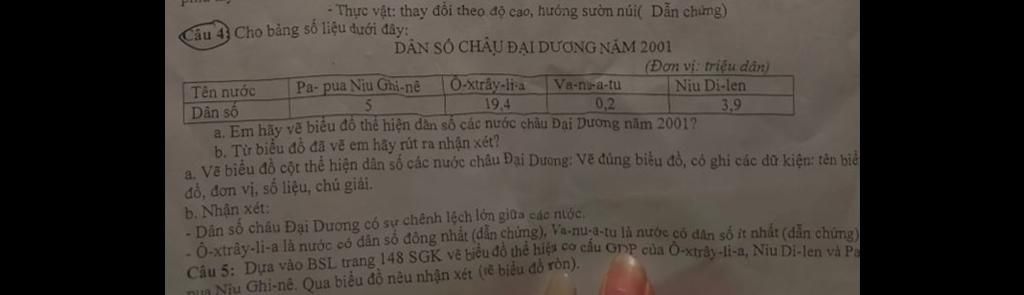 - Thực vật: thay đổi theo độ cao, hướng sườn núi( Dẫn chứng)
Câu 4: Cho bảng số liệu dưới đây:
DÂN SỐ CHÂU ĐẠI DƯƠNG NĂM 2001
(Đơn vị: triệu dân)
Tên nước Pa- pua Niu Ghi-nê Ô-xtrây-li-a Va-nu-a-tu Niu Di-len
Dân số 5 19,4 0,2 3,9
a. Em hãy vẽ biểu đồ thể hiện dân số các nước châu Đại Dương năm 2001?
b. Từ biểu đồ đã vẽ em hãy rút ra nhận xét?
a. Vẽ biểu đồ cột thể hiện dân số các nước châu Đại Dương: Vẽ đúng biểu đồ, có ghi các dữ kiện: tên biể
đồ, đơn vị, số liệu, chú giải.
b. Nhận xét:
- Dân số châu Đại Dương có sự chênh lệch lớn giữa các nước.
- Ô-xtrây-li-a là nước có dân số đông nhất (dẫn chứng), Va-nu-a-tu là nước có dân số ít nhất (dẫn chứng)
Câu 5: Dựa vào BSL trang 148 SGK vẽ biểu đồ thể hiện cơ cấu GDP của Ô-xtrây-li-a, Niu Di-len và Pa
pua Niu Ghi-nê. Qua biểu đồ nêu nhận xét (vẽ biểu đồ tròn).